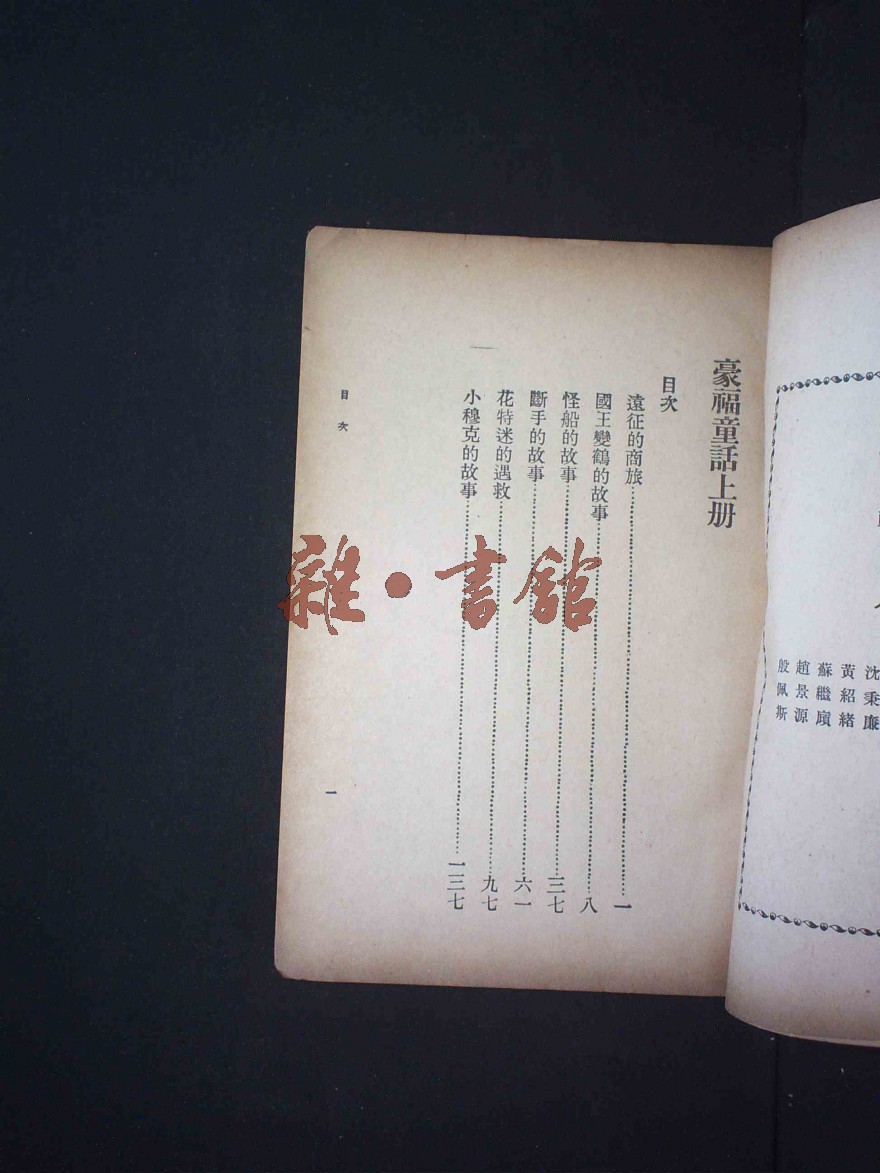 豪福童話上册
目次
遠征的商旅…一
國王變鶴的故事…八
怪船的故事…三七
斷手的故事…六一
花特迷的遇救…九七
小穆克的故事…一三七
目次
一
沈秉廉
黃紹緒
蘇繼廎
趙景源
殷佩斯
雜·書館